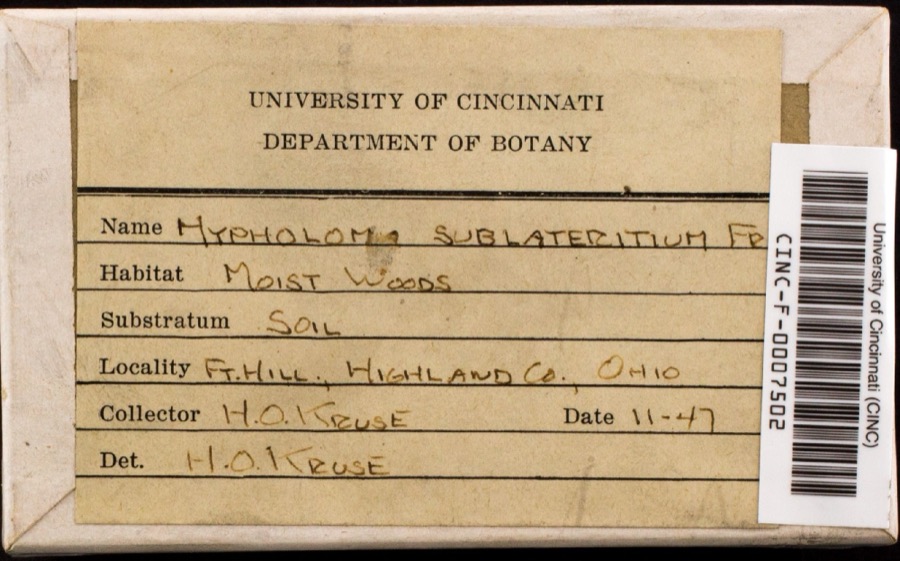 UNIVERSITY OF CINCINNATI
DEPARTMENT OF BOTANY
Name HYPHOLOMA SUBLATERITIUM FR
Habitat MOIST WOODS
Substratum SOIL
Locality FT. HILL., HIGHLAND CO., OHIO
Collector H.O. KRUSE Date 11-47
Det. H.O. KRUSE
CINC-F-0007502
University of Cincinnati (CINC)